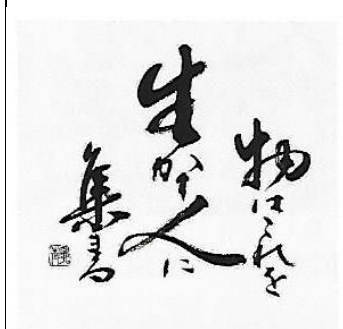 物はこれを
生かす人に
集まる